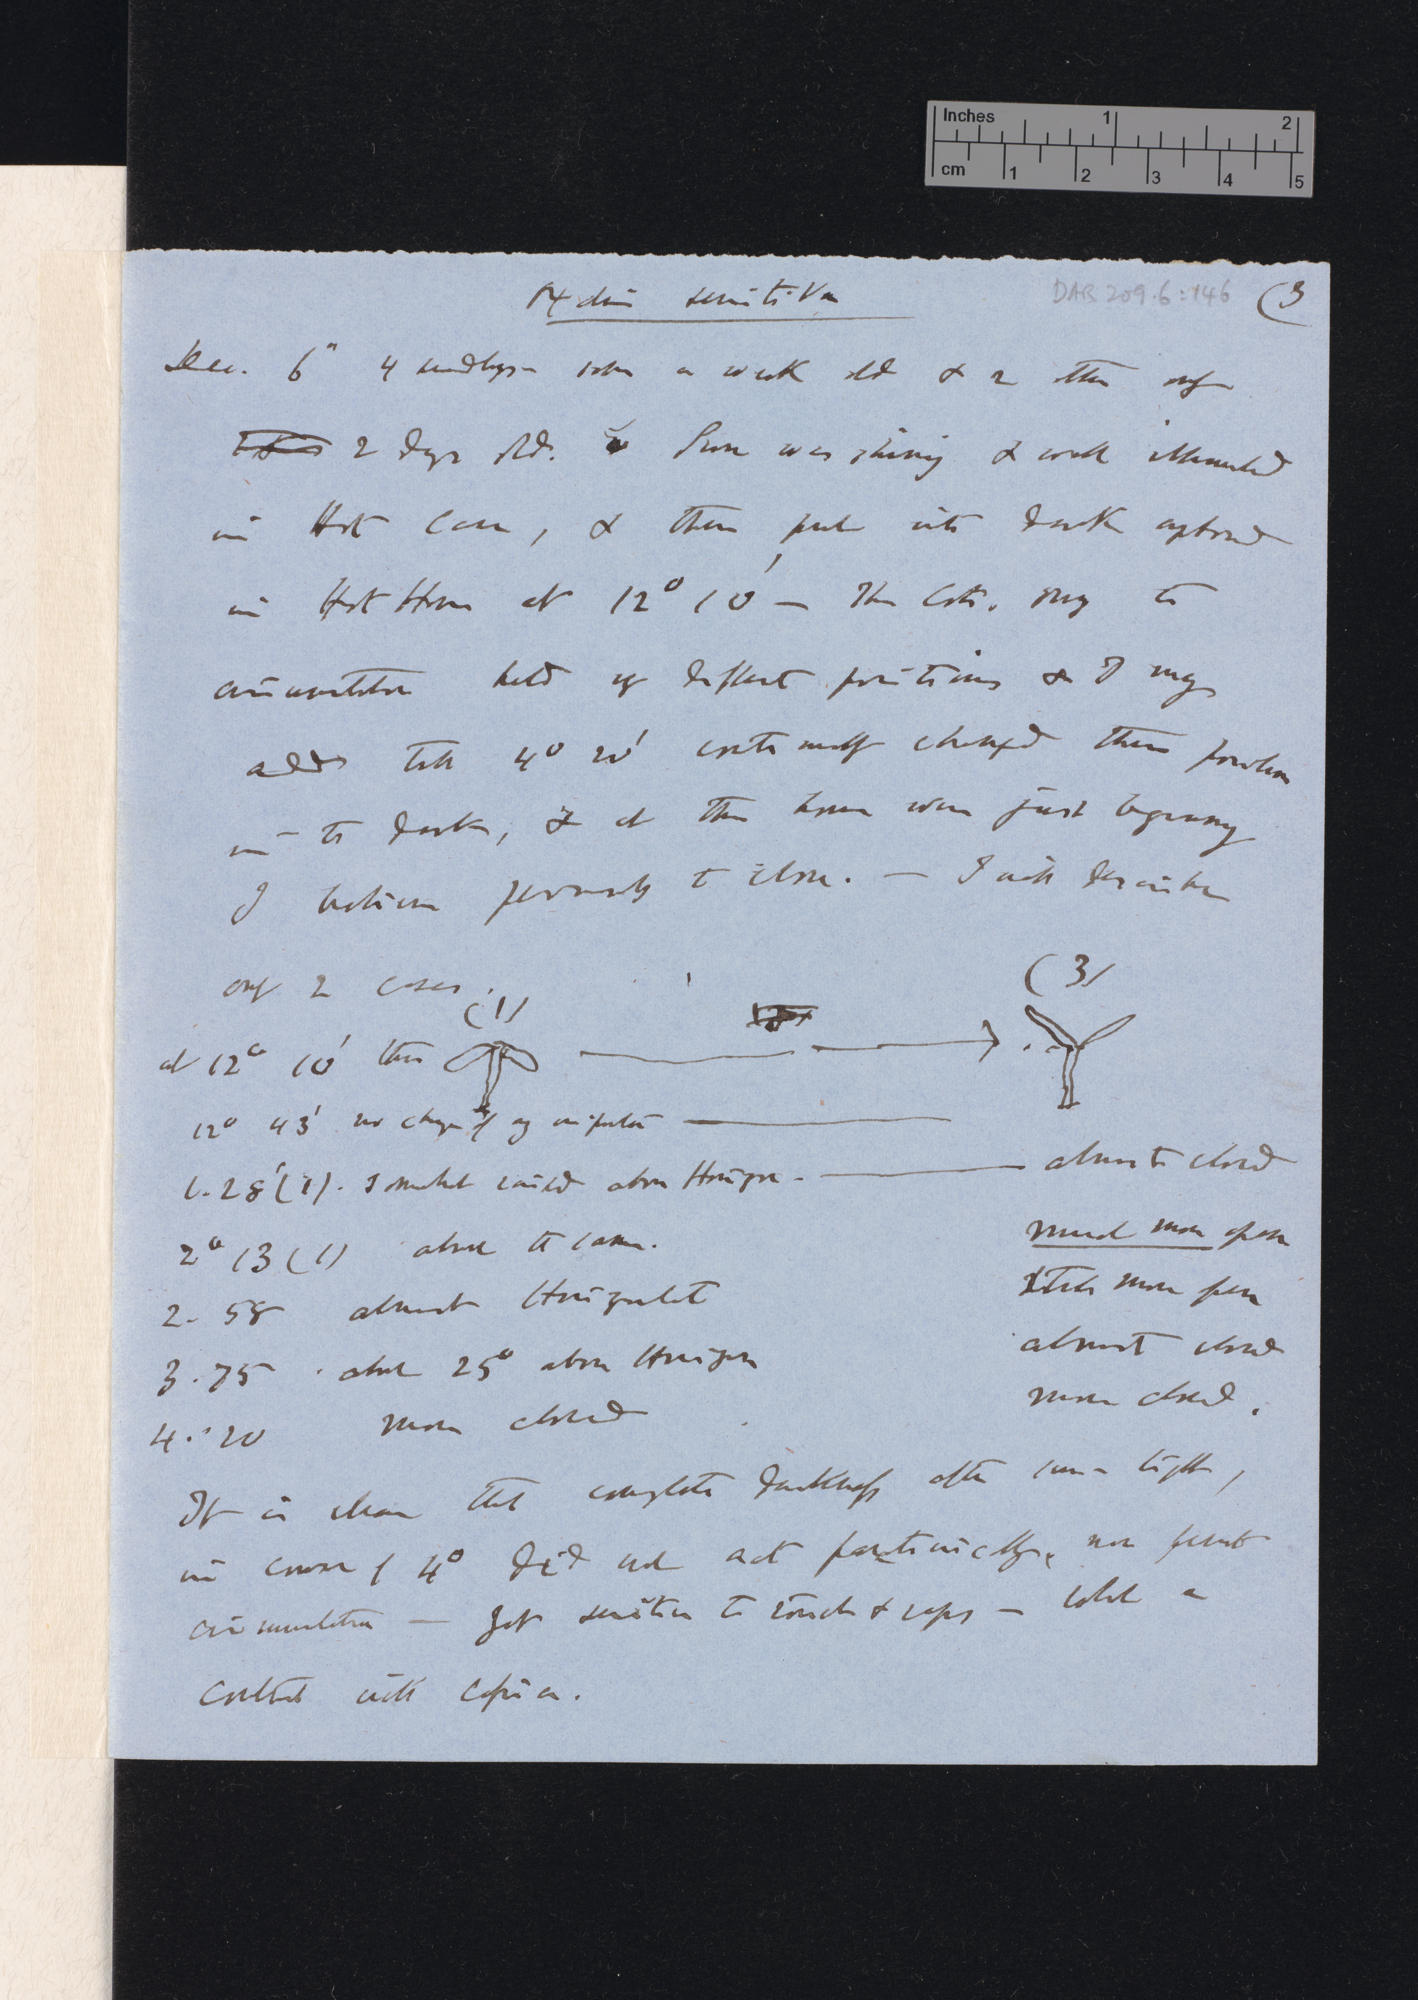 Inches 1 2
cm 1 2 3 4 5
Oxalis sensitiva
DAR 209.6:146 (3
Dec. 6" 4 seedlings some a week old & 2 others only
2 days old. Sun was shining & well illuminated
in Hot Case, & then put into dark cupboard
in Hot House at 12° 10' — The Cots. owing to
circumnutation held up different positions &
till 4° 20' continually changed their position
in the dark, & at this hour were just beginning
to close. — I will describe
only 2 cases.
(1) (3)
at 12° 10' thus
12° 43' no change of any importance
1.28' (1). Somewhat raised above Horizon — almost closed
2° 13 (1) about the same. much more open
2. 58 almost Horizontal little more open
3. 75 about 25° above Horizon almost closed
4. 20 more closed more closed.
It is clear that complete darkness after sun-light,
in course of 4° did not act , nor prevent
circumnutation — yet sensitive to touch & — what a
contrast with Cassia.